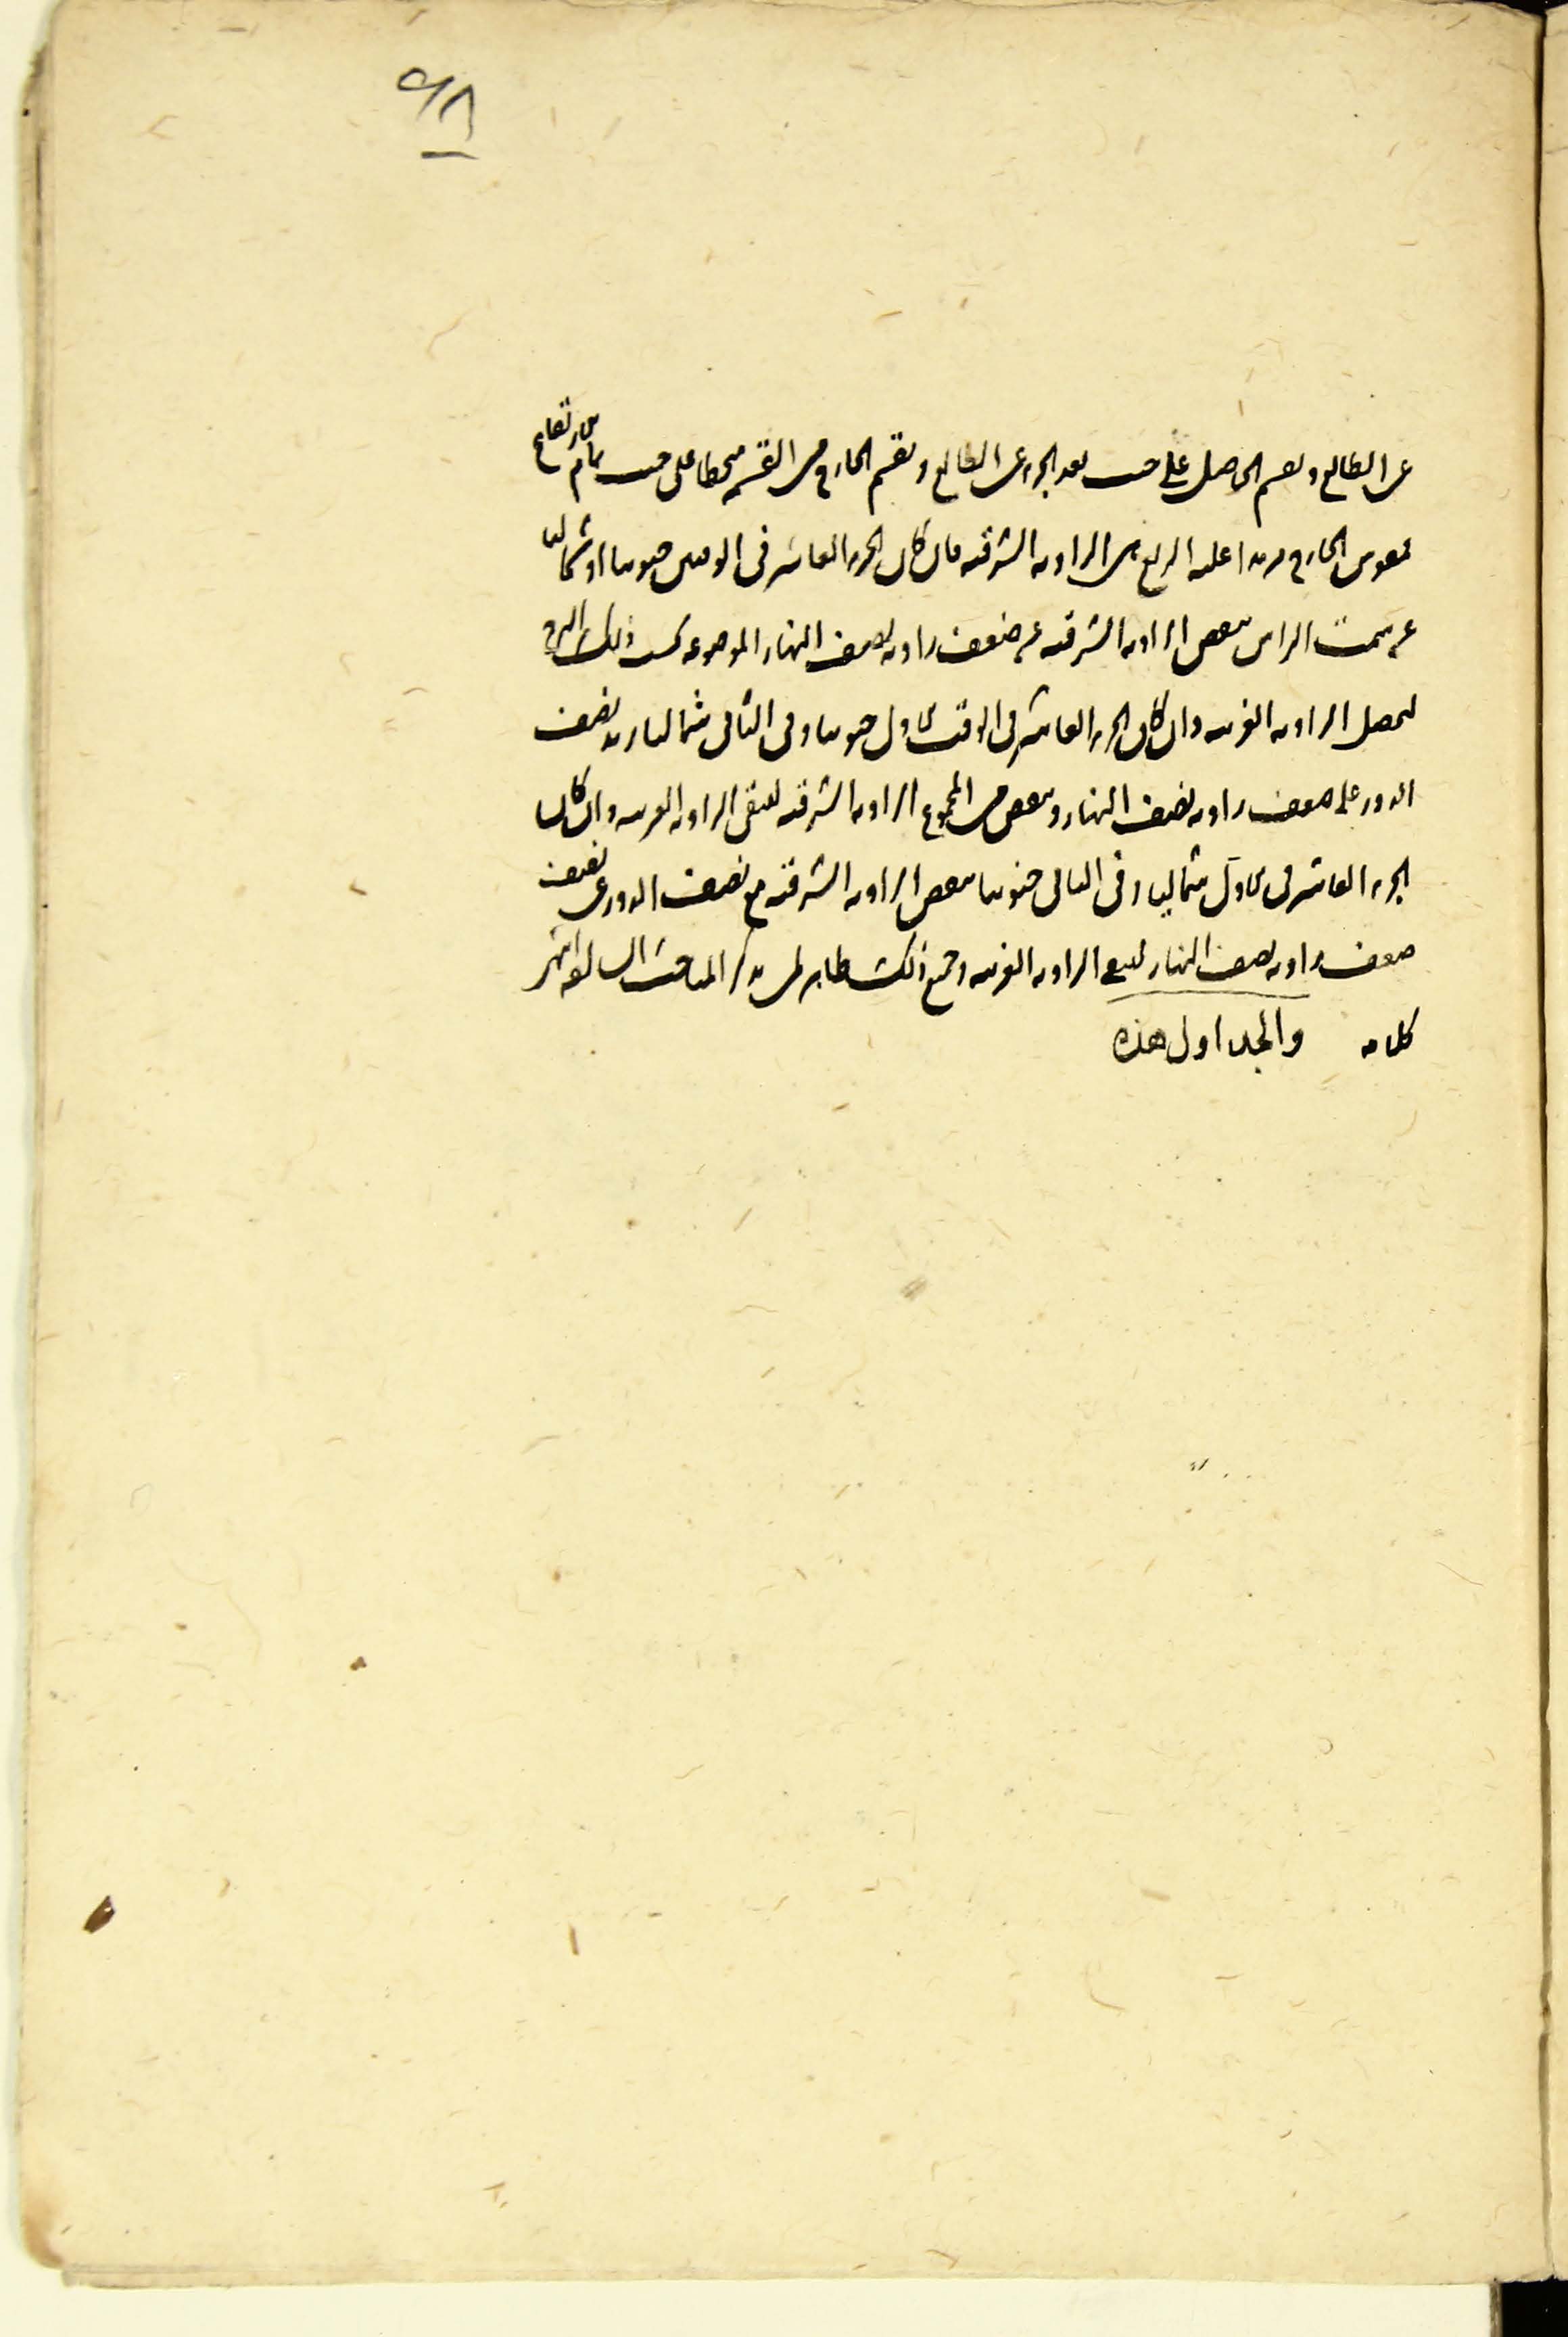 ٩٨
عن الطالع ونقسم الحاصل على جيب بعد الجزء عن الطالع ونقسم الخارج من القسمة منحطا على جيب تمام الارتفاع
فقوس الخارج مزيدا عليه الربع هي الزاوية الشرقية فان كان الجزء العاشر في الوقتين جنوبيا او شماليا
عن سمت الراس ننقص الزاوية الشرقية من ضعف زاوية نصف النهار الموضوعة تحت ذلك البرج
ليحصل الزاوية الغربية وان كان الجزء العاشر في الوقت الاول جنوبيا وفي الثاني شماليا نزيد نصف
الدور على ضعف زاوية نصف النهار وننقص من المجموع الزاوية الشرقية ليبقى الزاوية الغربية وان كان
الجزء العاشر في الاول شماليا وفي الثاني جنوبيا ننقص الزاوية الشرقية مع نصف الدور عن
ضعف زاوية نصف النهار ليبقى الزاوية الغربية وجميع ذلك ظاهر لمن يذكر المباحث السالفة انتهى
كلامه والجداول هذه